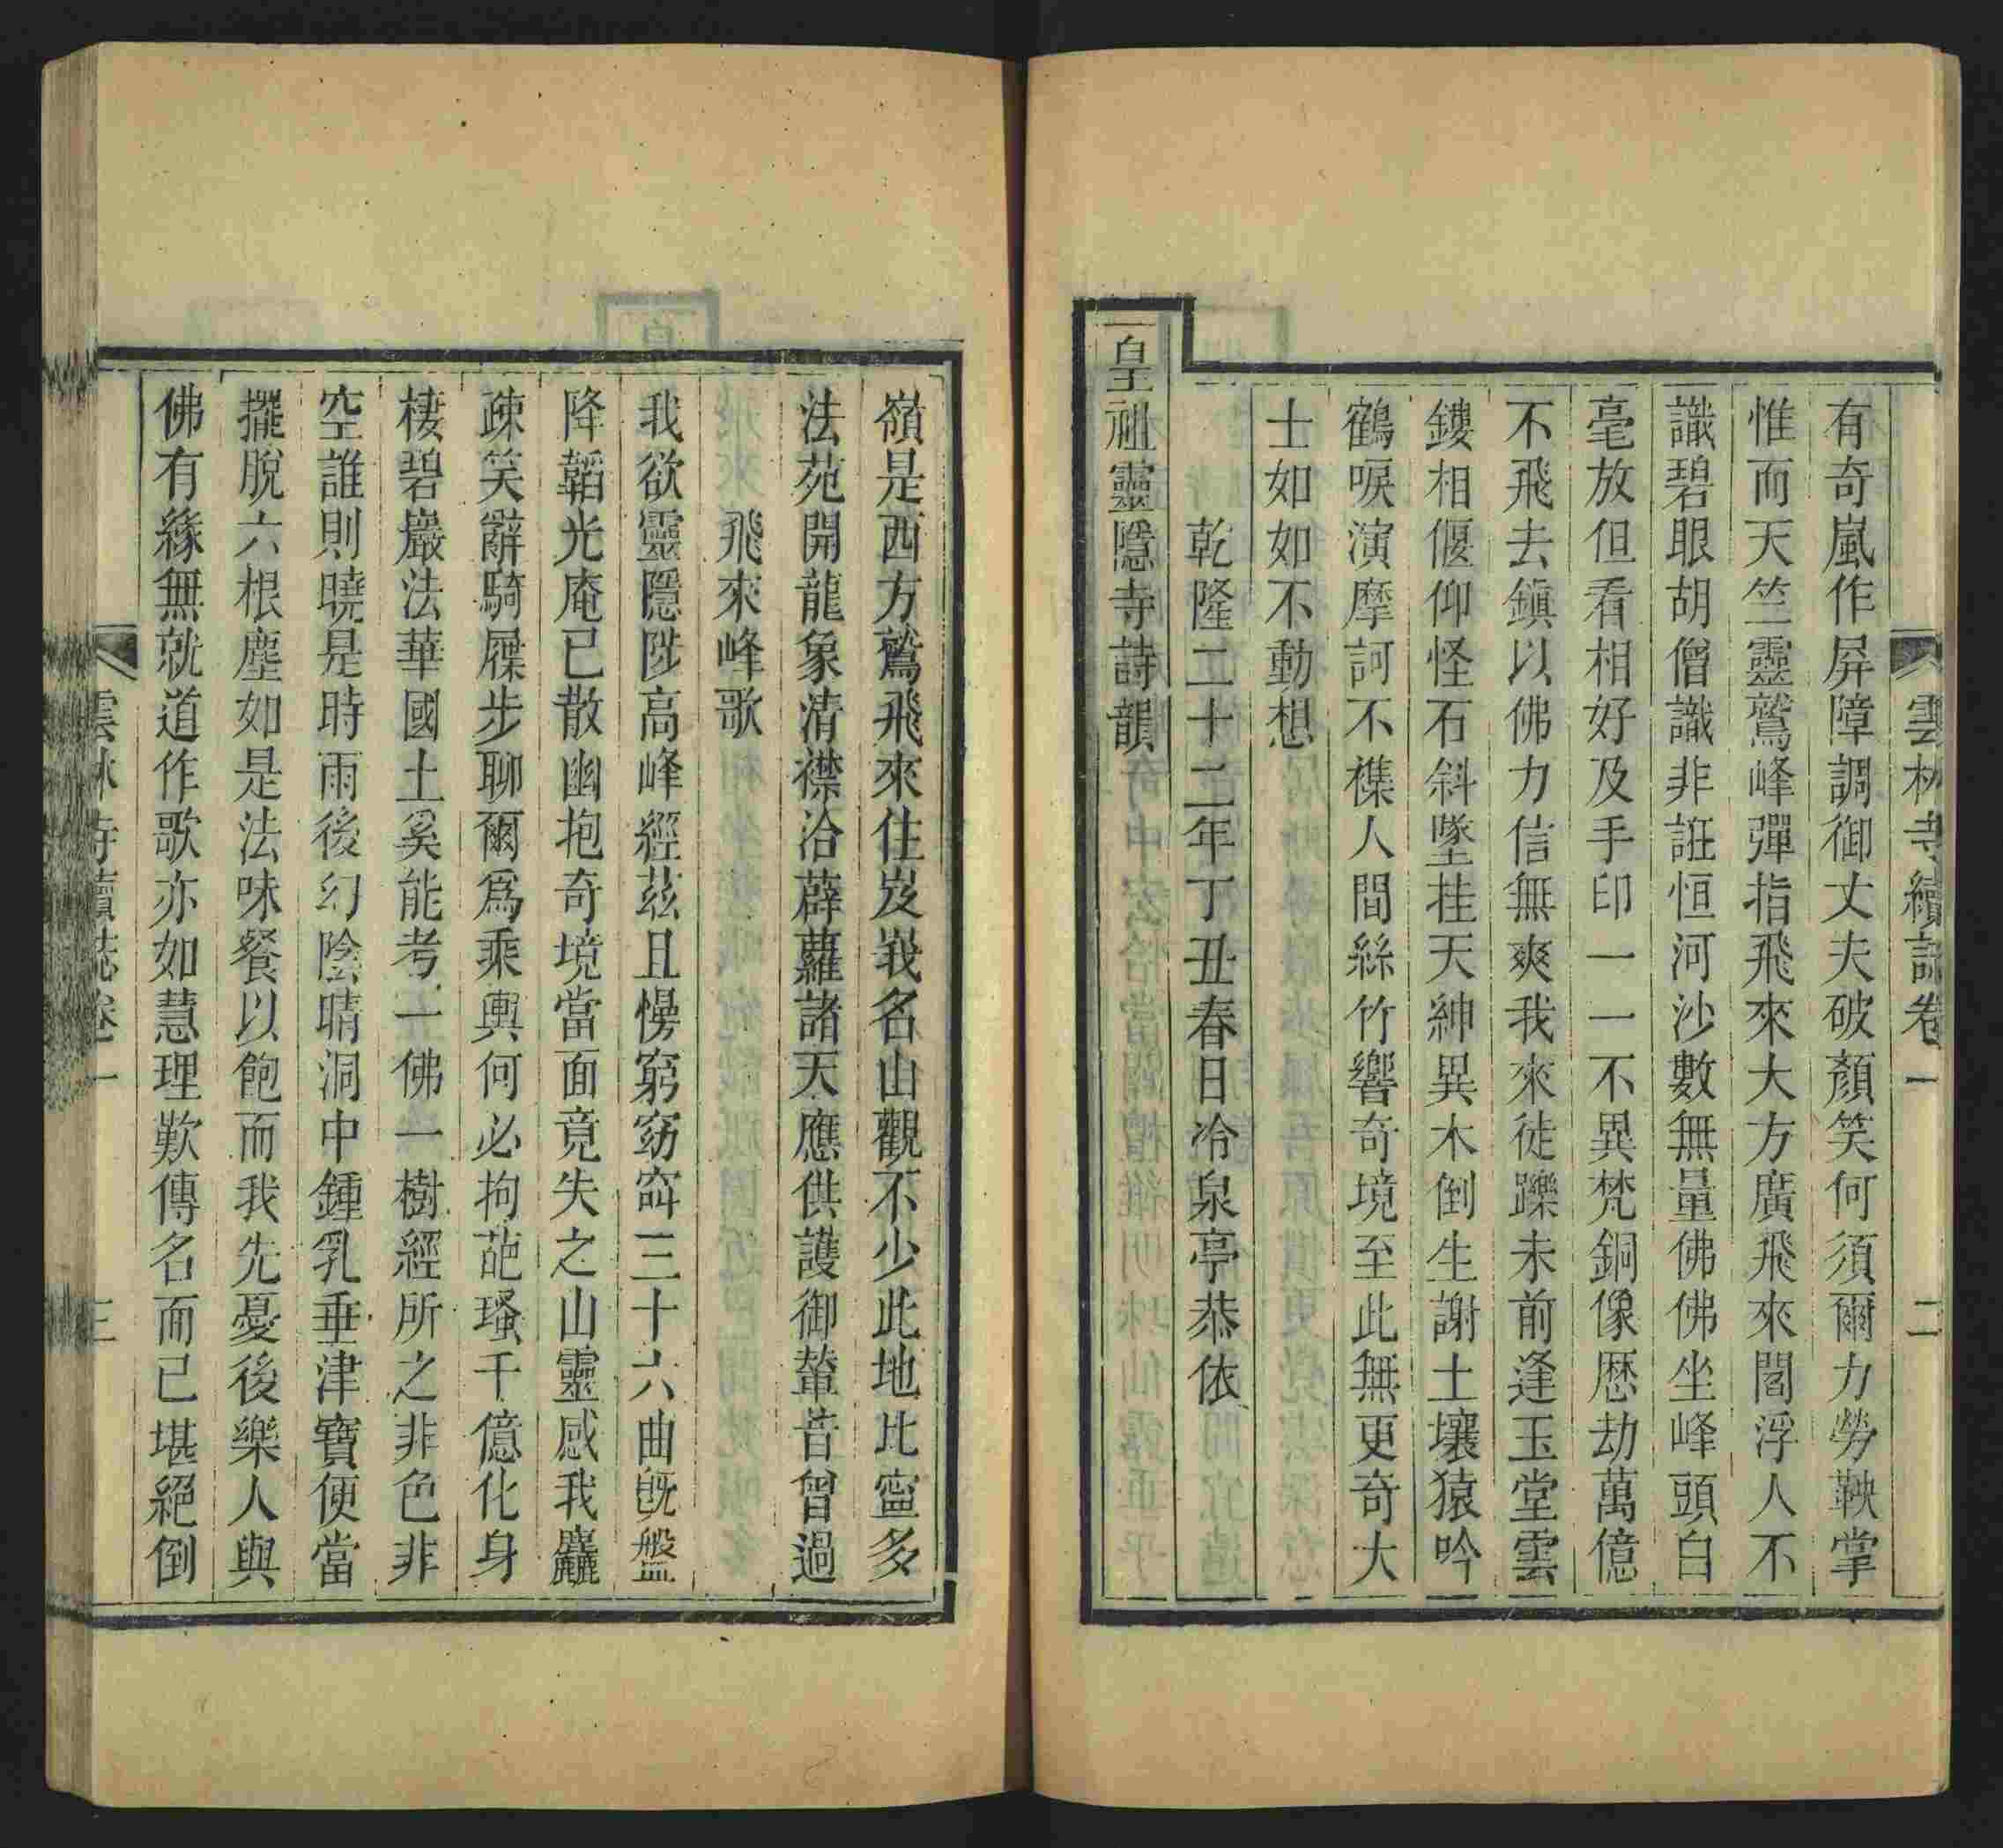 雲林寺續誌卷一　二
有奇嵐作屏障調御丈夫破顏笑何須爾力勞鞅掌
惟而天竺靈鷲峰彈指飛來大方廣飛來閻浮人不
識碧眼胡僧識非誑恒河沙數無量佛佛坐峰頭白
毫放但看相好及手印一一不異梵銅像歷劫萬億
不飛去鎮以佛力信無爽我來徒躒未前逢玉堂雲
鏤相偃仰怪石斜墜挂天紳異木倒生謝土壤猿吟
鶴唳演摩訶不襍人間絲竹響奇境至此無更奇大
士如如不動想
乾隆二十二年丁丑春日冷泉亭恭依
皇祖靈隱寺詩韻
嶺是西方鷲飛來住岌峩名山觀不少此地比寧多
法苑開龍象清襟洽薜蘿諸天應供護御輦昔曾過
飛來峰歌
我欲靈隱陟高峰經茲且慢窮窈窕三十六曲旣盤
降韜光庵已散幽抱奇境當面竟失之山靈感我麤
疎笑辭騎屧步聊爾爲乘輿何必拘葩瑵千億化身
棲碧巖法華國土奚能考一佛一樹經所之非色非
空誰則曉是時雨後幻陰晴洞中鍾乳垂津寶便當
擺脫六根塵如是法味餐以飽而我先憂後樂人與
佛有緣無就道作歌亦如慧理歎傳名而已堪絕倒
雲林寺續誌卷一　三